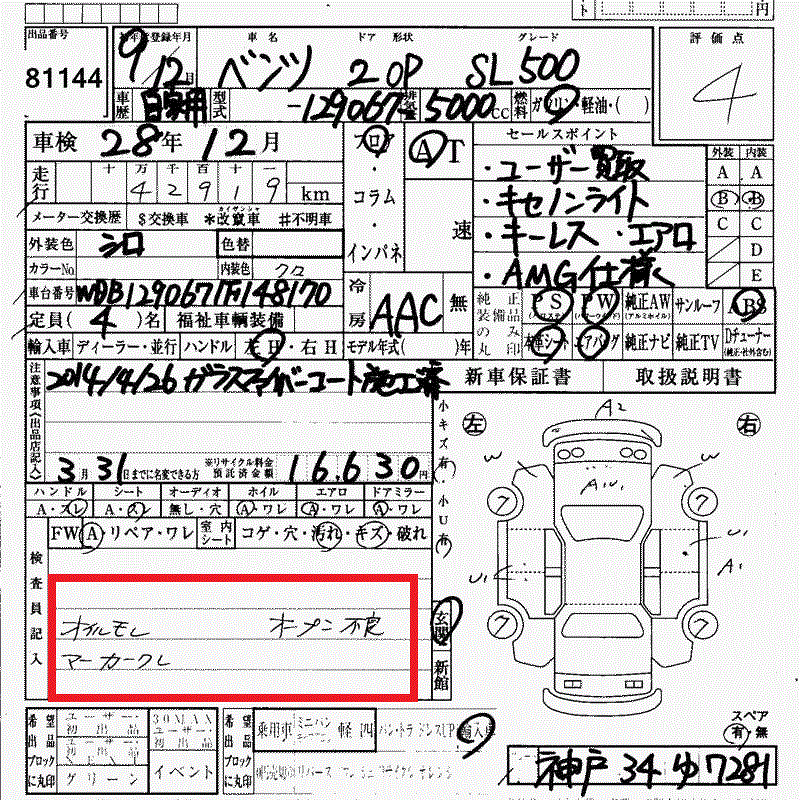 ト 円
出品番号 初年度登録年月 車名 ドア 形状 グレード 評価点
81144 9/12月 ベンツ 2 OP SL500 4
車歴 自家用 型式 -129067 排気量 5000cc 燃料 ガソリン・軽油・( )
車検 28年12月 フロア・コラム・インパネ AT 速 セールスポイント 外装 内装
走行 十万千百十 42919 km
・ユーザー買取
・キセノンライト
・キーレス ・エアロ
・AMG仕様
A A
B B
C C
D
E
メーター交換歴 $交換車 *改竄車 #不明車
外装色 シロ 色替
カラーNo. 内装色 クロ
車台番号 WDB1290671F148170
冷房 AAC 無
定員(4)名 福祉車輌装備
純正装備品のみ丸印 PS PW 純正AW サンルーフ ABS
(パワステ) (パワーウインド) (アルミホイル)
本革シート エアバッグ 純正ナビ 純正TV Dチューナー
(純正・社外含む)
輸入車 ディーラー・並行 ハンドル 左H・右H モデル年式( )年
注意事項(出品店記入) 2014/4/26 ガラスファイバーコート施工済
新車保証書 取扱説明書
3月31日までに名変できる方 ※リサイクル料金預託済金額 16.630円
小キズ有・小U有
ハンドル シート オーディオ ホイル エアロ ドアミラー
A・スレ A・スレ 無し・穴 A・ワレ A・ワレ A・ワレ
FW A・リペア・ワレ 室内シート コゲ・穴・汚れ・キズ・破れ
検査員記入
オイルモレ オープン不良
マーカークレ
玄関 新館
左 右
A2
W W
A1U1
7 7
U1 U1
A1
7 7
スペア
有・無
希望出品ブロックに丸印 ユーザー初出品 30MAXユーザー初出品
グリーン イベント
希望出品ブロックに丸印 乗用車 ミニバン 軽 四 輸入車
神戸 34 ゆ 7281